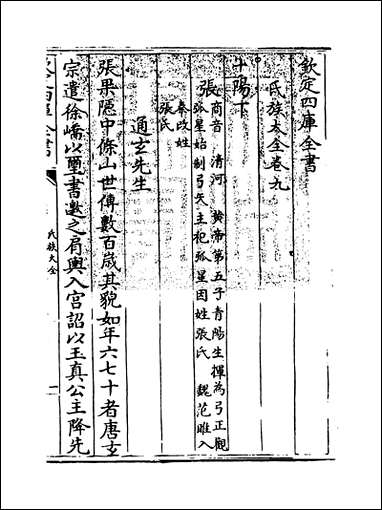 欽定四庫全書
氏族大全卷九
十陽下
張
商音 清河 黄帝第五子青陽生揮為弓正觀
弧星始制弓矢主祀弧星因姓張氏 魏范雎入
秦改姓
張氏
通玄先生
張果隱中條山世傳數百歲其貌如年六七十者唐玄
宗遣徐嶠以璽書邀之肩輿入宮詔以玉真公主降先
氏族大全
一